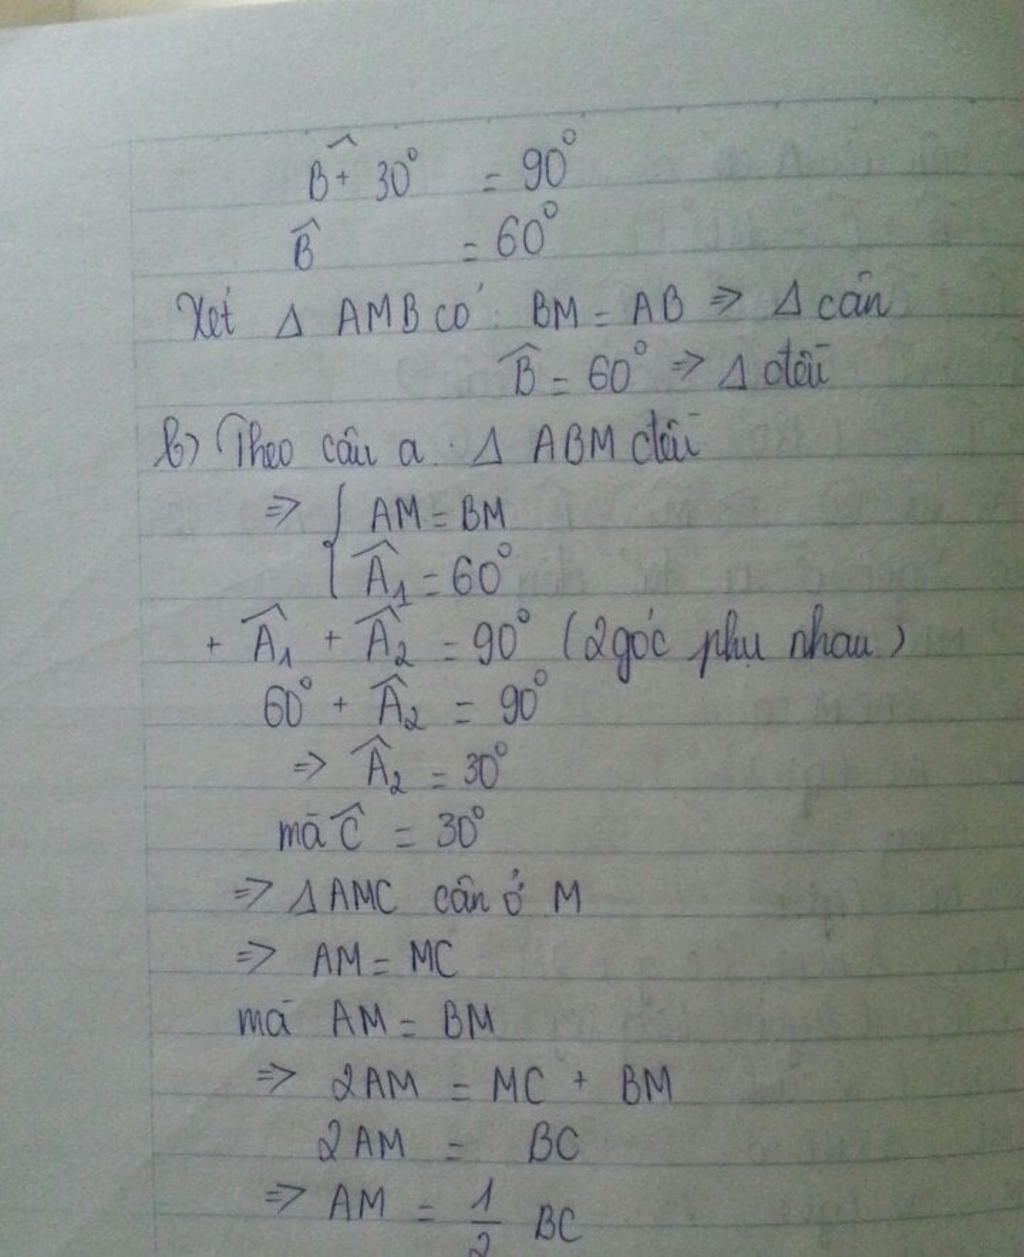 B̂ + 30° = 90°
B̂ = 60°
Xét Δ AMB có: BM = AB => Δ cân
B̂ = 60° => Δ đều
b) Theo câu a. Δ ABM đều
=> { AM = BM
Â₁ = 60°
+ Â₁ + Â₂ = 90° (2 góc phụ nhau)
60° + Â₂ = 90°
=> Â₂ = 30°
mà Ĉ = 30°
=> Δ AMC cân ở M
=> AM = MC
mà AM = BM
=> 2AM = MC + BM
2AM = BC
=> AM = 1/2 BC